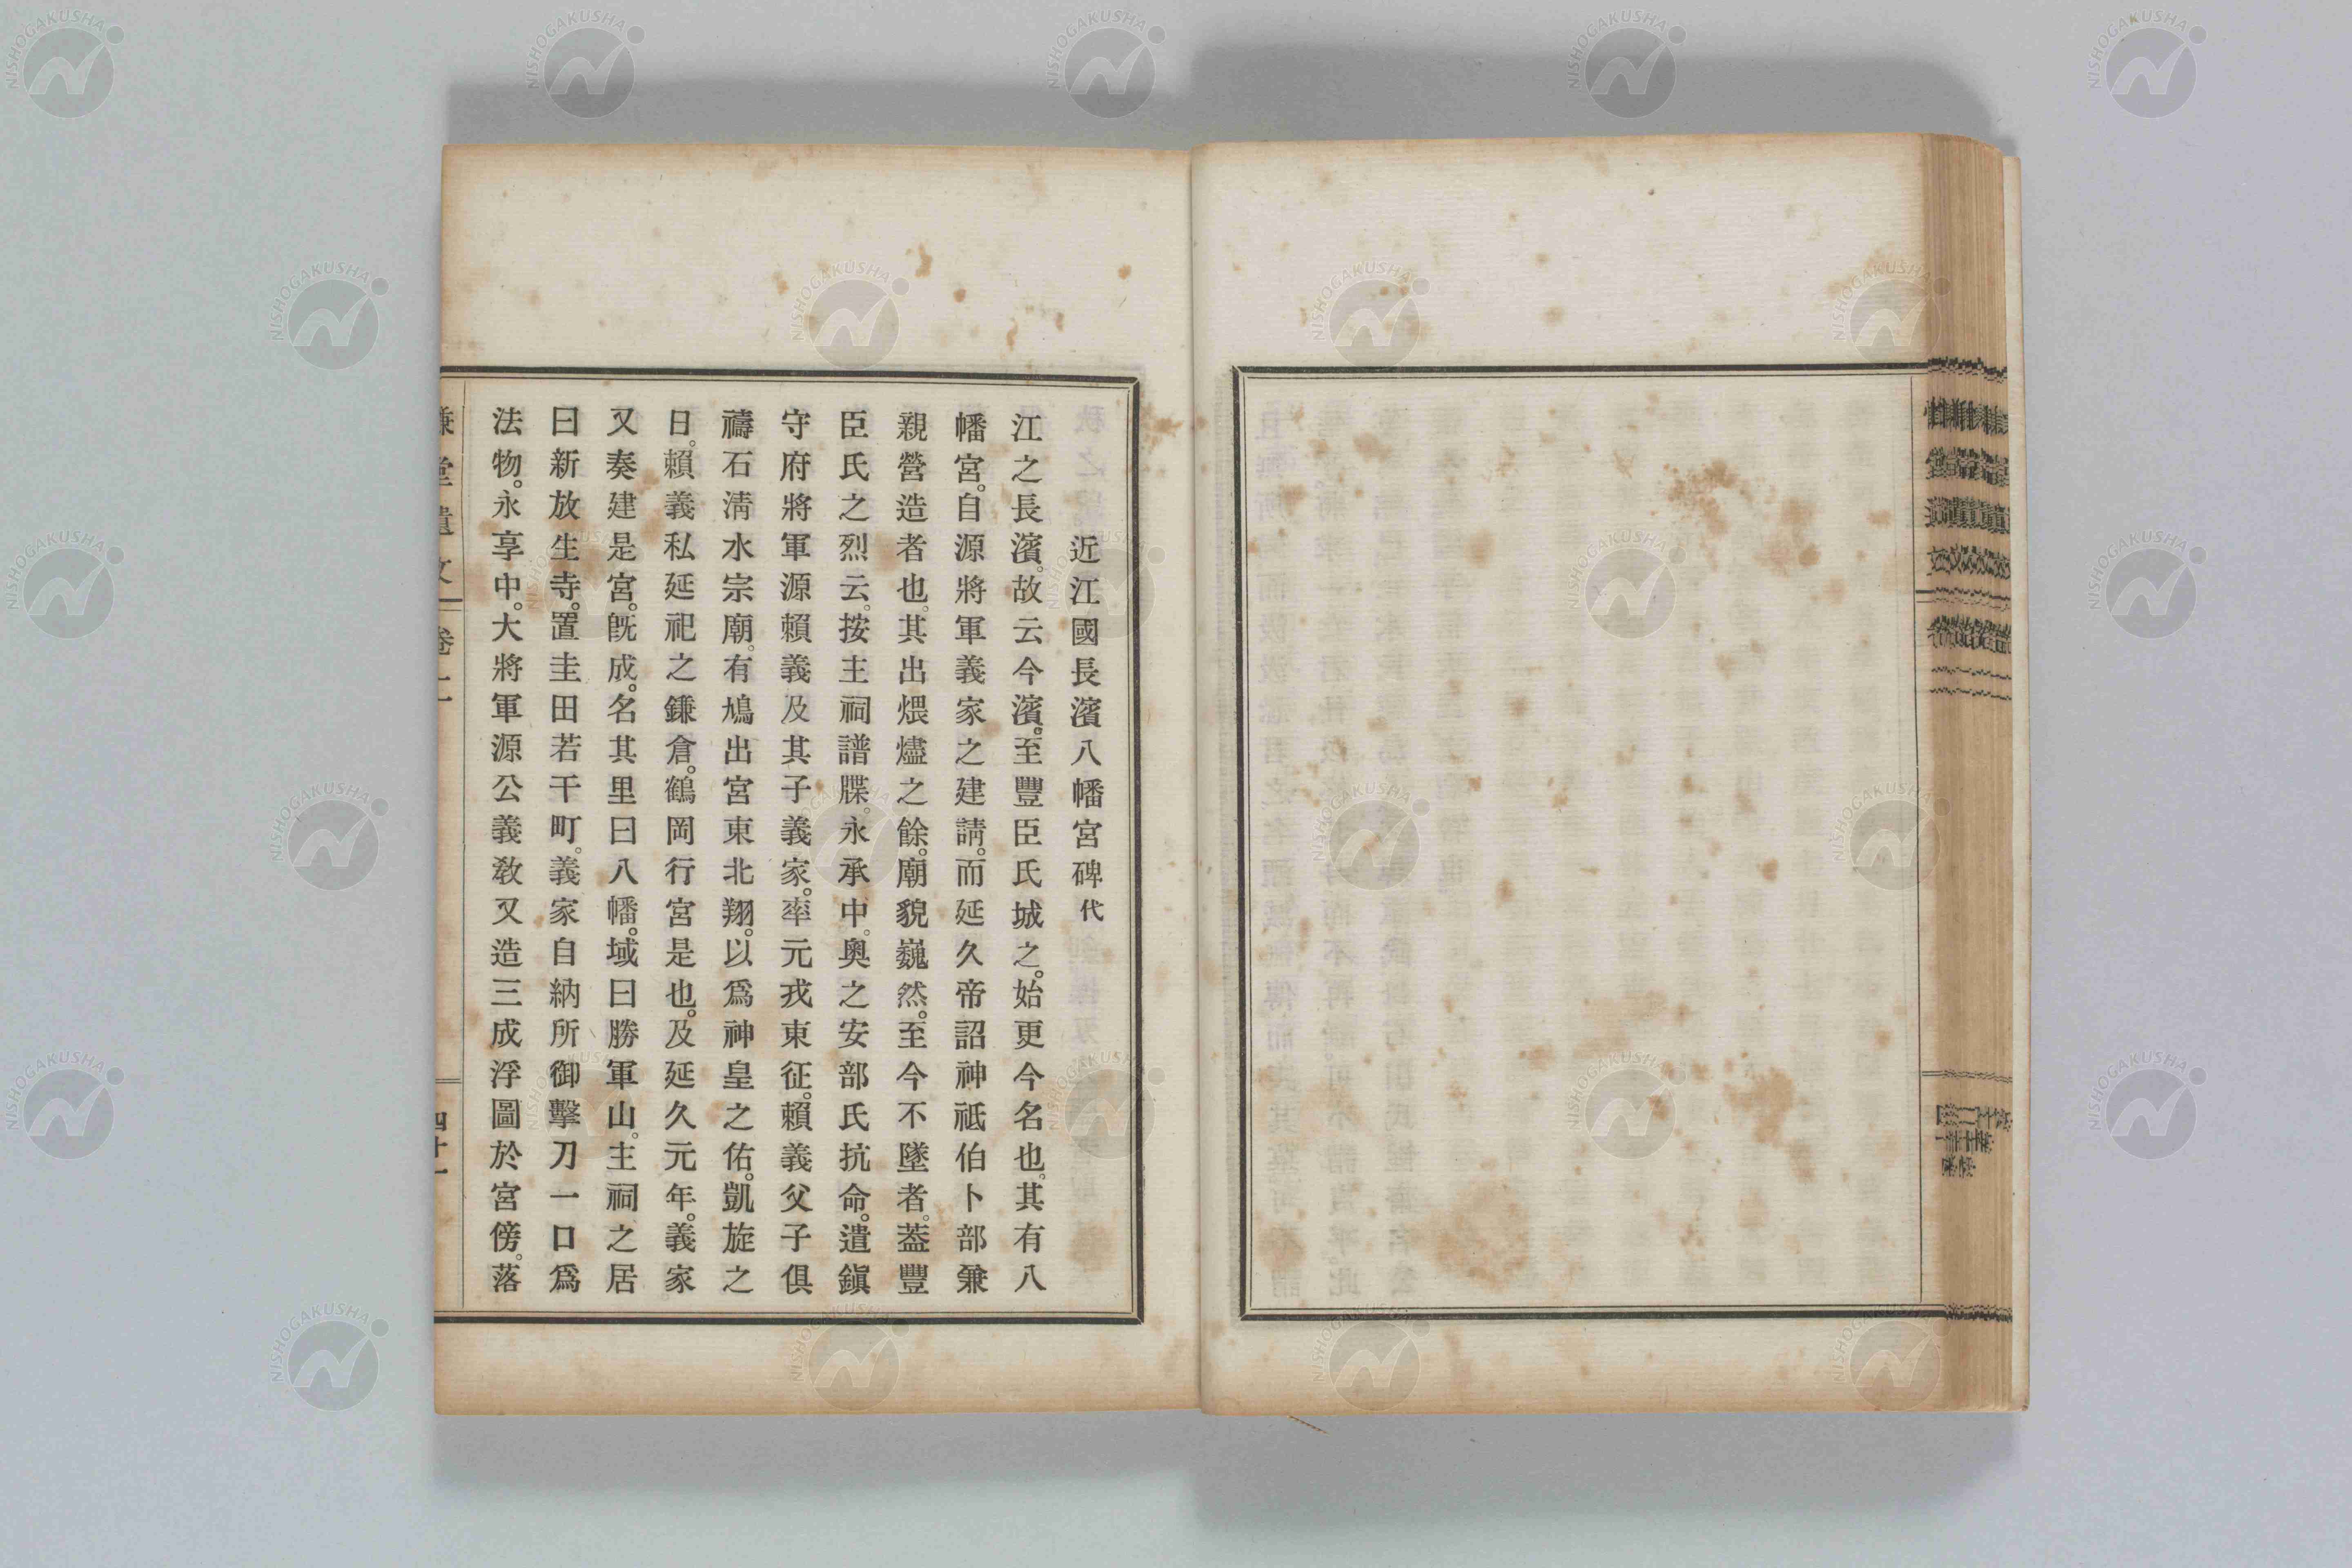 近江國長濱八幡宮碑代
江之長濱。故云今濱。至豐臣氏城之。始更今名也。其有八
幡宮。自源將軍義家之建請。而延久帝詔神祇伯卜部兼
親營造者也。其出煨燼之餘。廟貌巍然。至今不墜者。蓋豐
臣氏之烈云。按主祠譜牒。永承中。奧之安部氏抗命。遣鎭
守府將軍源賴義及其子義家。率元戎東征。賴義父子俱
禱石淸水宗廟。有鳩出宮東北翔。以爲神皇之佑。凱旋之
日。賴義私延祀之鎌倉。鶴岡行宮是也。及延久元年。義家
又奏建是宮。旣成。名其里曰八幡。域曰勝軍山。主祠之居
曰新放生寺。置圭田若干町。義家自納所御擊刀一口爲
法物。永享中。大將軍源公義敎又造三成浮圖於宮傍。落
四十一
NISHOGAKUSHA